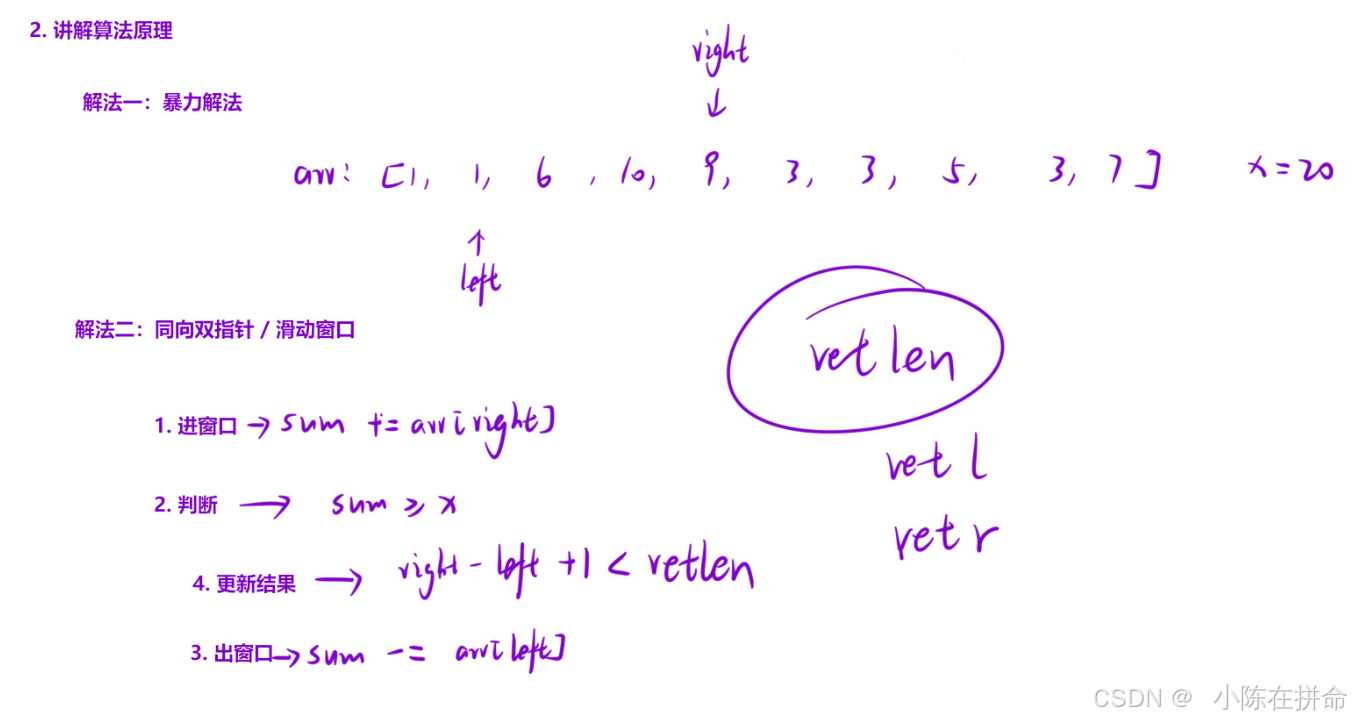 2. 讲解算法原理
right
↓
解法一：暴力解法
arr: [1, 1, 6, 10, 9, 3, 3, 5, 3, 7] x=20
↑
left
解法二：同向双指针 / 滑动窗口
retlen
1. 进窗口 → sum += arr[right]
retl
2. 判断 → sum ≥ x
retr
4. 更新结果 → right - left +1 < retlen
3. 出窗口 → sum -= arr[left]
CSDN @ 小陈在拼命